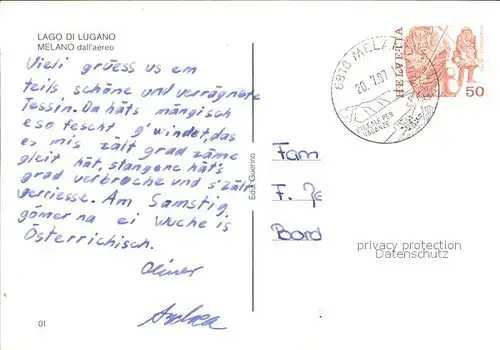 LAGO DI LUGANO
MELANO dall'aereo
Vieli grüess us em
teils schöne und verrägnete
Tessin. Da häts mängisch
eso fescht g'windet, das
es mis zält grad zäme
gleit hät, stangene häts
grad verbroche und s'zält
verriesse. Am Samstig,
gömer na ei wuche is
Österrichisch.
Oliver
Andrea
01
Ediz. Guerino
6818 MELA
20.7.97
VACANZE
HELVETIA
50
Fam
F.
Bord
privacy protection
Datenschutz